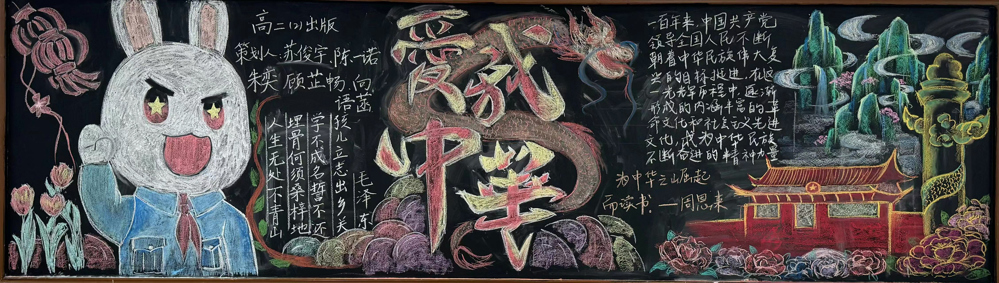 高二(2)出版
策划人:苏俊宇、陈一诺
朱奕 顾芷畅 向
语 茎
孩儿立志出乡关
学不成名誓不还
埋骨何须桑梓地
人生无处不青山
毛泽东
爱我
中华
一百年来,中国共产党
领导全国人民不断
朝着中华民族伟大复
兴的目标挺进,在这
一光辉历程中,逐渐
形成的内涵丰富的革
命文化和社会主义先进
文化,成为中华民族
不断奋进的精神力量
为中华之崛起
而读书——周恩来